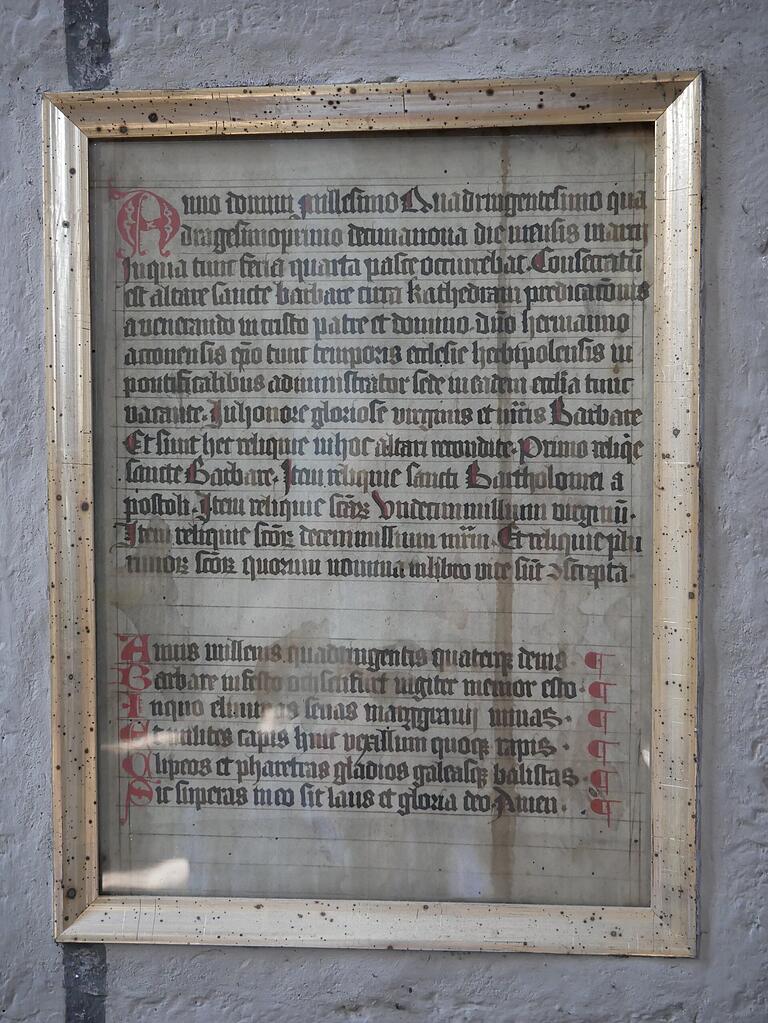 Anno domini Millesimo Quadringentesimo qua
dragesimoprimo decimanona die mensis marcii
Inqua tunc feria quarta pasce occurrebat. Consecratū
est altare sancte barbare circa kathedram predicatōnis
a venerando in cristo patre et domino. dn̄o hermanno
acconensis ep̄o tunc temporis ecclesie herbipolensis in
pontificalibus administrator sede in eadem ecclīa tunc
vacante. In honore gloriose virginis et mr̄is Barbare
Et sunt hec reliquie in hoc altari recondite. Primo reliq̄e
sancte Barbare. Item reliquie sancti Bartholomei a
postoli. Item reliquie sctāꝝ Vndecim millium virginū.
Item reliquie sctōꝝ decem millium mr̄im. Et reliquie plu
rimoꝝ sctōꝝ quorum nomina in libro vite sūt ꝯscripta.
Annis millenis quadringentis quaterqꝫ denis
Barbare in festo iugiter memor esto.
In quo senas marggravii minas.
Et milites capis hinc vexillum quoqꝫ rapis
Clipeos et pharetras gladios galeasqꝫ balistas
Sic superas in eo sit laus et gloria deo Amen.